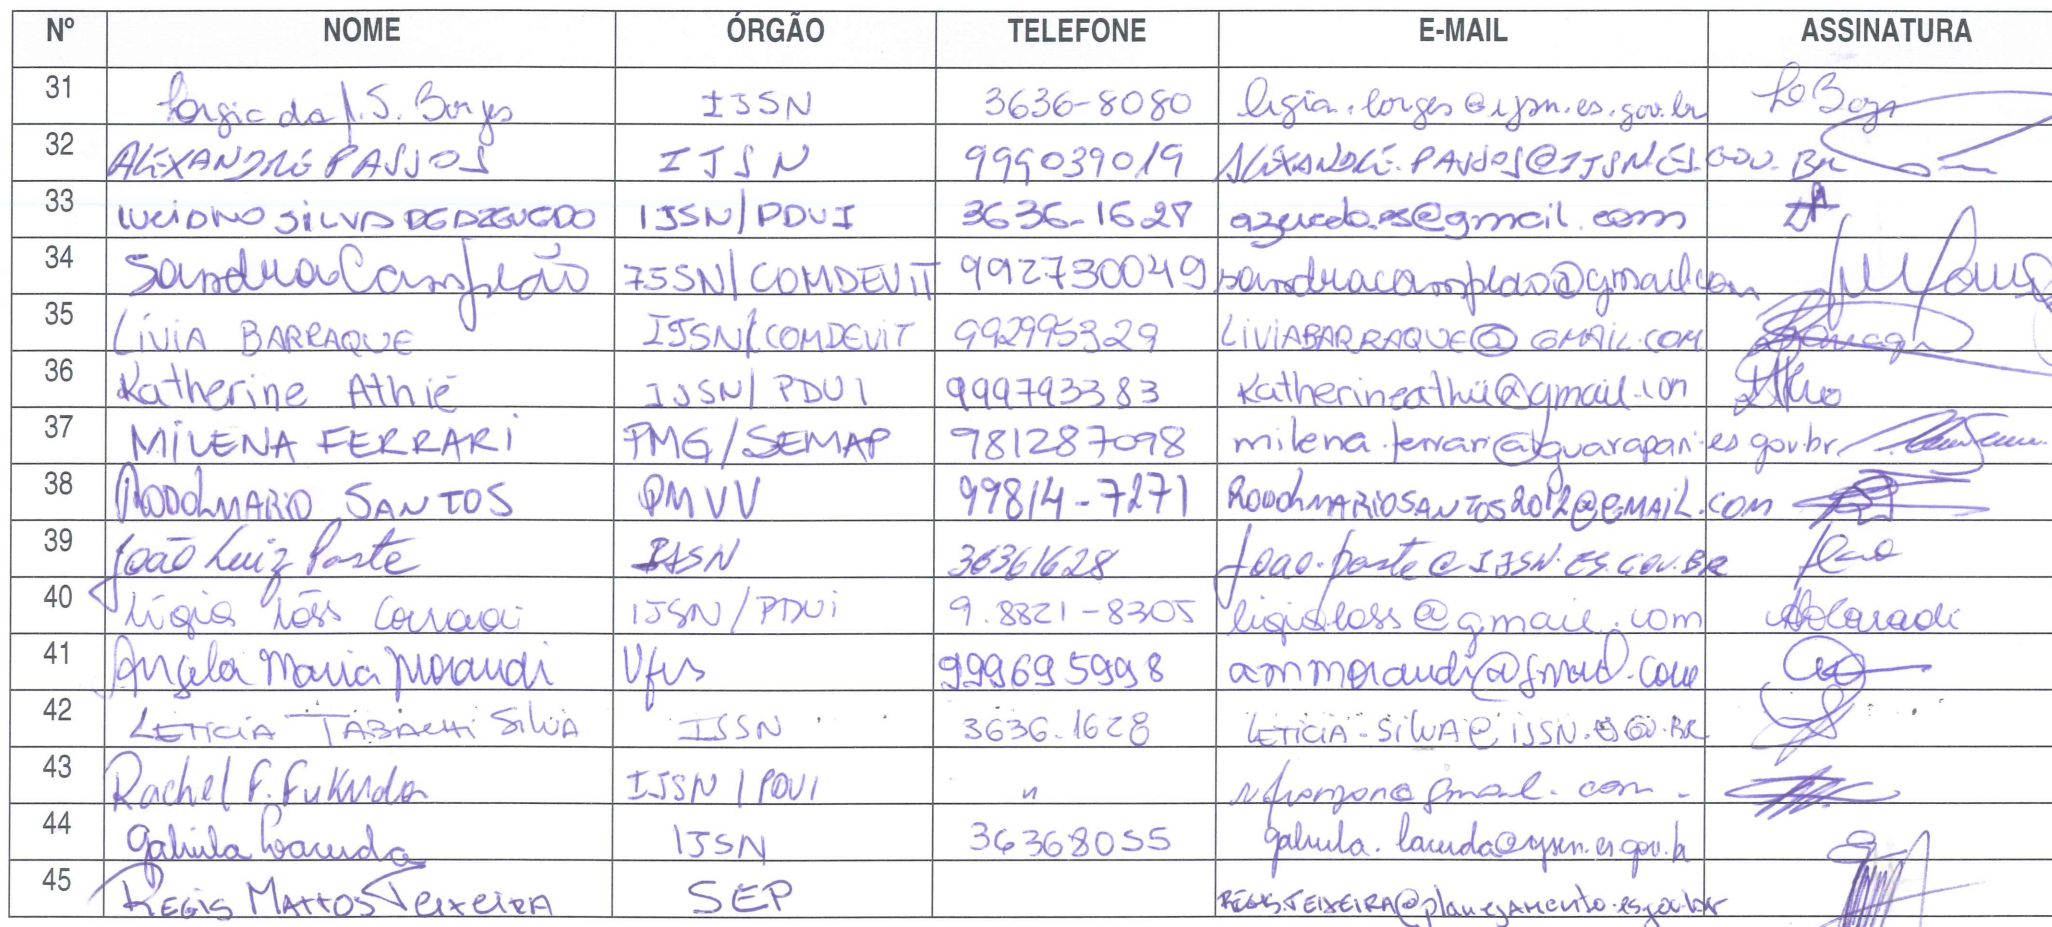 Nº NOME ÓRGÃO TELEFONE E-MAIL ASSINATURA
31 da S. Borges IJSN 3636-8080 ligia.borges@ijsn.es.gov.br
32 ALEXANDRE PASSOS IJSN 999039019 ALEXANDRE.PASSOS@IJSN.ES.GOV.BR
33 LUCIANO SILVA DE AZEVEDO IJSN/PDUI 3636-1627 azevedo.es@gmail.com
34 Sandra Campleão IJSN/COMDEVIT 992730049
35 LÍVIA BARRAQUE IJSN/COMDEVIT 992995329 LIVIABARRAQUE@GMAIL.COM
36 Katherine Athié IJSN/PDUI 999793383 Katherineathie@gmail.com
37 MILENA FERRARI PMG/SEMAP 981287098 milena.ferrari@guarapari.es.gov.br
38 RODOLMARIO SANTOS PMVV 99814-7271 RODOLMARIOSANTOS2012@GMAIL.COM
39 João Luiz Paste IJSN 36361628 joao.paste@IJSN.ES.GOV.BR
40 Lígia Löss Corradi IJSN/PDUI 9.8821-8305 ligialoss@gmail.com
41 Angela Maria Morandi Ufes 999695998 ammorandi@gmail.com
42 LETICIA TABACHI SILVA IJSN 3636.1628 LETICIA-SILVA@IJSN.ES.GOV.BR
43 Rachel F. Fukuda IJSN/PDUI "
44 Gabriela Lacerda IJSN 36368055 gabriela.lacerda@ijsn.es.gov.br
45 REGIS MATTOS TEIXEIRA SEP REGIS.TEIXEIRA@planejamento.es.gov.br